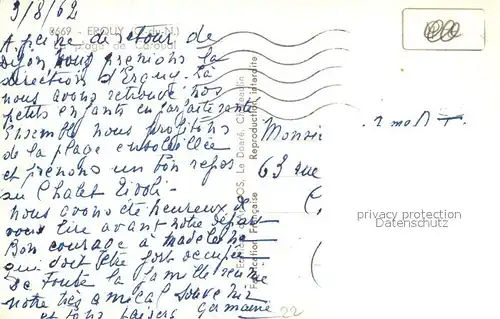 3/8/62
0669 - ERQUY (C.-du-N.)
Plage de Caroual
A peine de retour de
Dijon nous prenions la
direction d'Erquy. Là
nous avons retrouvé nos
petits enfants en parfaite santé
Ensemble nous profitons
de la plage ensoleillée
et prenons un bon repos
au Chalet Tivoli -
nous avons été heureux de
vous lire avant notre départ
Bon courage à Madeleine
qui doit être fort occupée
De toute la famille réunie
notre très amical souvenir
et bons baisers Germaine
22
Le Doaré, Châteaulin
Reproduction interdite
Française
Monsie
63 rue
privacy protection
Datenschutz